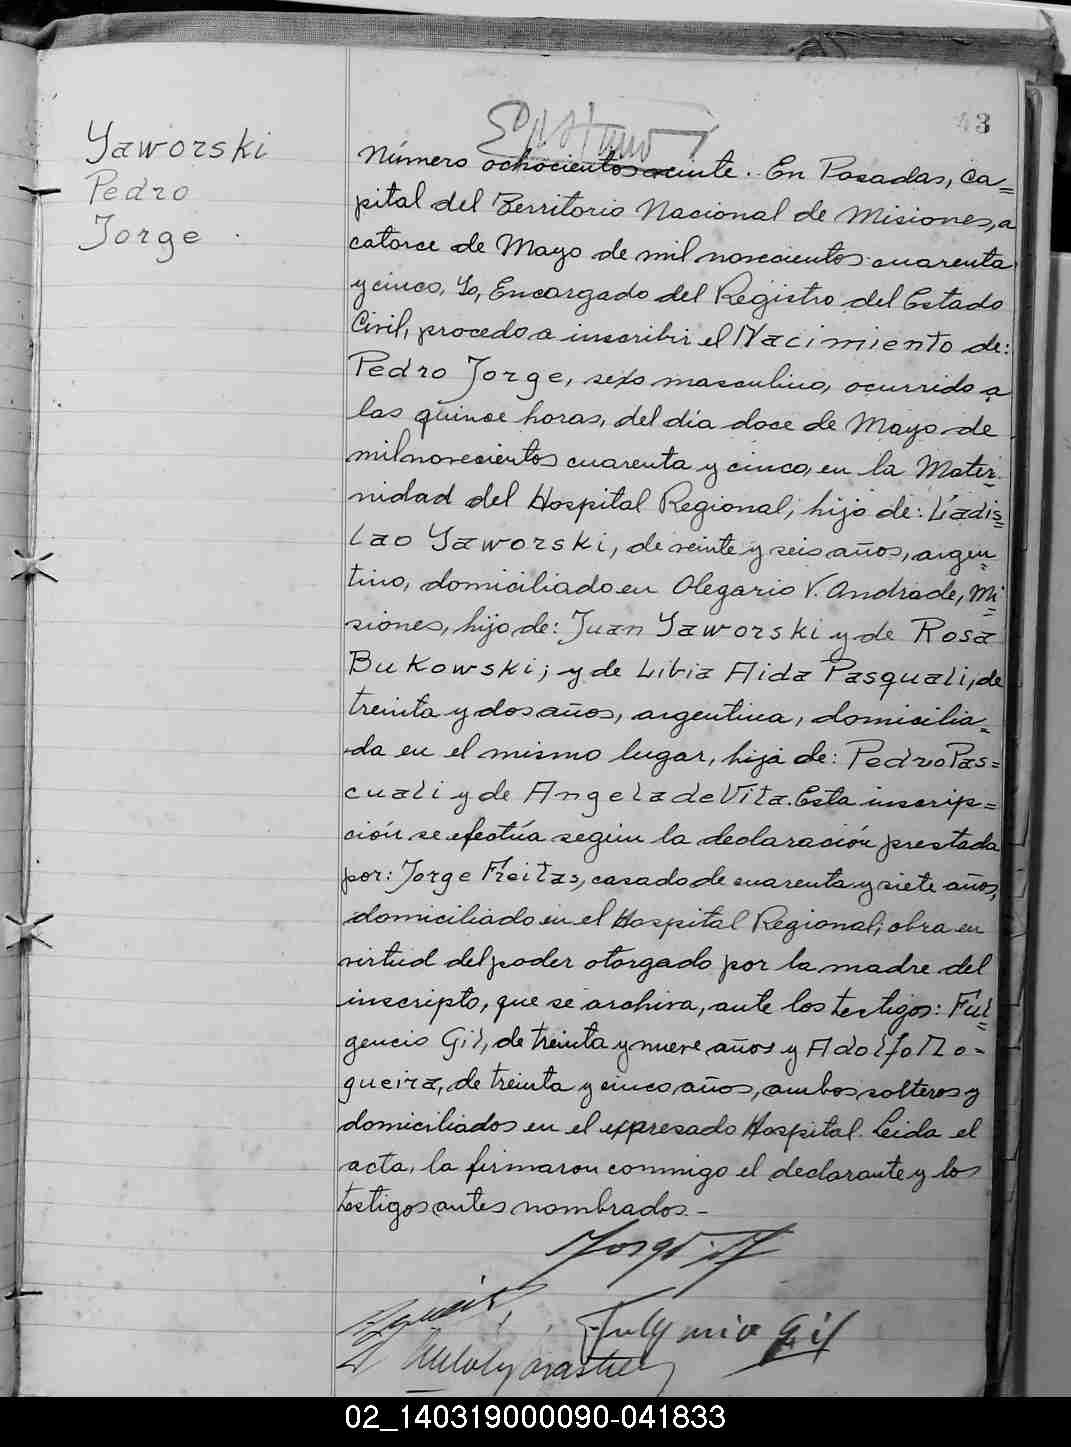 Yaworski
Pedro
Jorge
43
Número ochocientos veinte. En Posadas, Ca=
pital del Territorio Nacional de Misiones, a
catorce de Mayo de mil novecientos cuarenta
y cinco, Yo, Encargado del Registro del Estado
Civil, procedo a inscribir el Nacimiento de:
Pedro Jorge, sexo masculino, ocurrido a
las quince horas, del día doce de Mayo de
mil novecientos cuarenta y cinco, en la Mater=
nidad del Hospital Regional, hijo de: Ladis=
lao Yaworski, de veinte y seis años, argen=
tino, domiciliado en Olegario V. Andrade, Mi=
siones, hijo de: Juan Yaworski y de Rosa
Bukowski; y de Libia Aida Pasquali, de
treinta y dos años, argentina, domicilia=
da en el mismo lugar, hija de: Pedro Pas=
cuali y de Angela de Vita. Esta inscrip=
ción se efectúa según la declaración prestada
por: Jorge Freitas, casado de cuarenta y siete años,
domiciliado en el Hospital Regional; obra en
virtud del poder otorgado por la madre del
inscripto, que se archiva, ante los testigos: Ful=
gencio Gil, de treinta y nueve años y Adolfo No=
gueira, de treinta y cinco años, ambos solteros y
domiciliados en el expresado Hospital. Leida el
acta, la firmaron conmigo el declarante y los
testigos antes nombrados.-
Fulgencio Gil
02_140319000090-041833